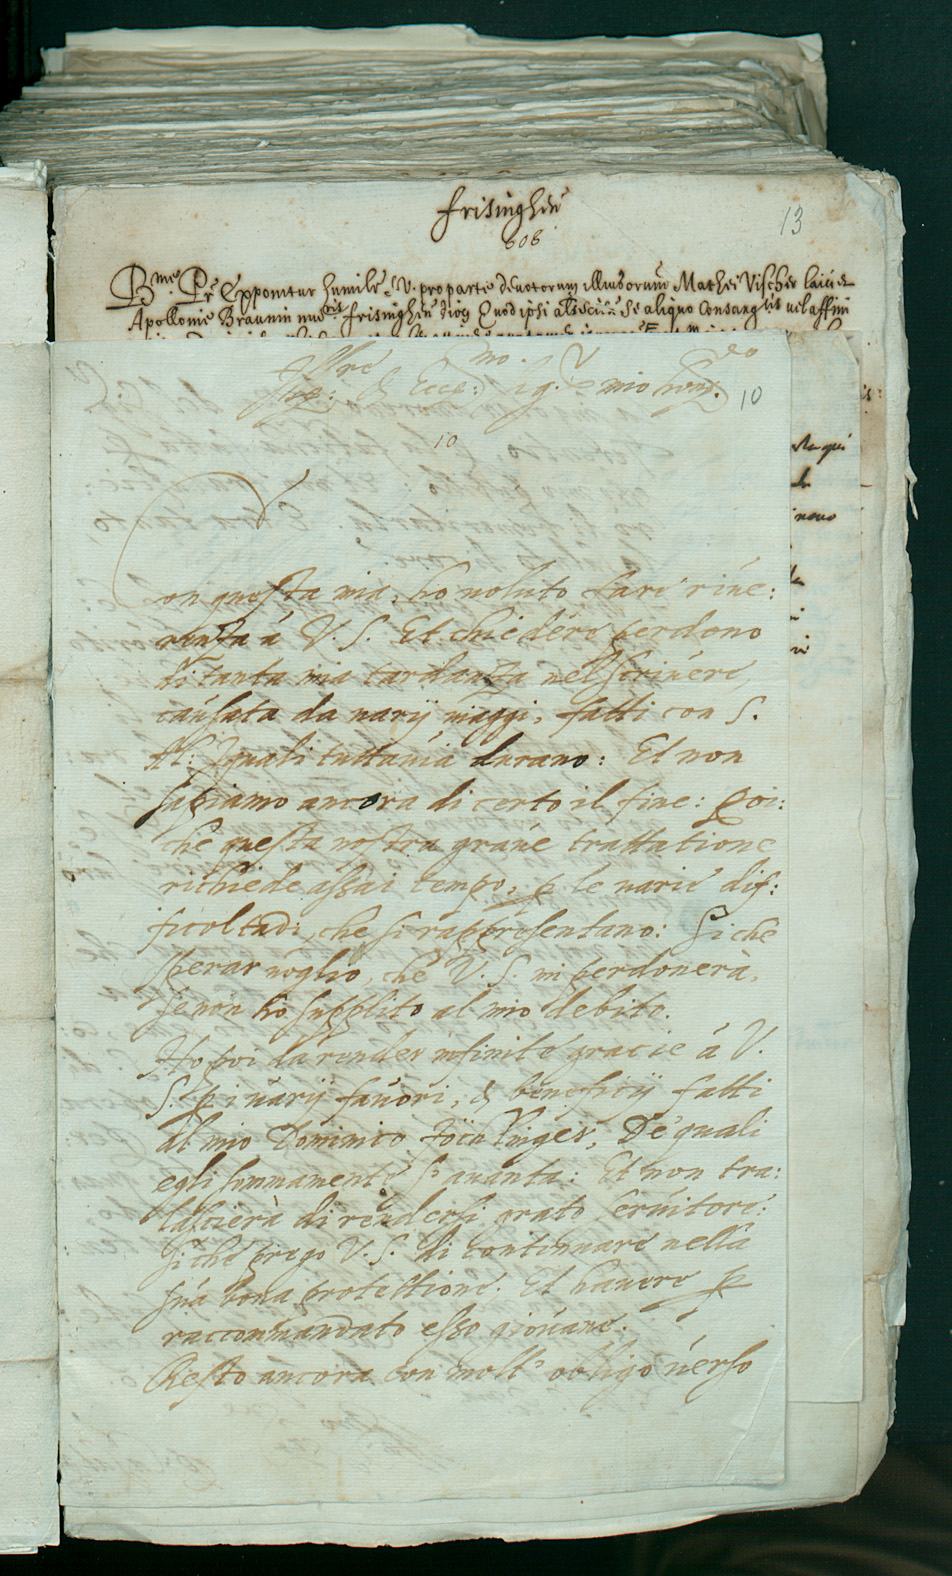 Frisinghen
608
13
B.me Pr Exponitur humiliter S. V. pro parte devotorum illius oratorum Mathei Vischer laici et
Apolloniae Braunin mulieris Frisinghen dioc. Quod ipsi alias scien. se aliquo consang.tis vel affini
Ill.re & Ecc.mo Sig. mio hon.do
10
10
Con questa mia, ho uoluto fare riue:
renza á V. S. Et chiedere perdono
di tanta mia tardanza nell scriuere,
causata da uarij uiaggi, fatti con S.
Al: Iquali tuttauia durano: Et non
sapiamo ancora di certo il fine: Poi:
che questa nostra graue trattatione
richiede assai tempo, p le uarie dif:
ficoltadi, che si rappresentano: Siche
sperar uoglio, che V. S. mi perdonerà,
se non ho supplito al mio debito.
Ho poi da render infinite gracie á V.
S. p i uarij fauori, & beneficij fatti
al mio Dominico, De quali
egli sommamente si auanta: Et non tra:
lascierà di rendersi grato seruitore:
Siche prego V. S. di continuare nella
sua bona protettione. Et hauere p
raccommandato esso giouane.
Resto ancora con molt' obligo uerso